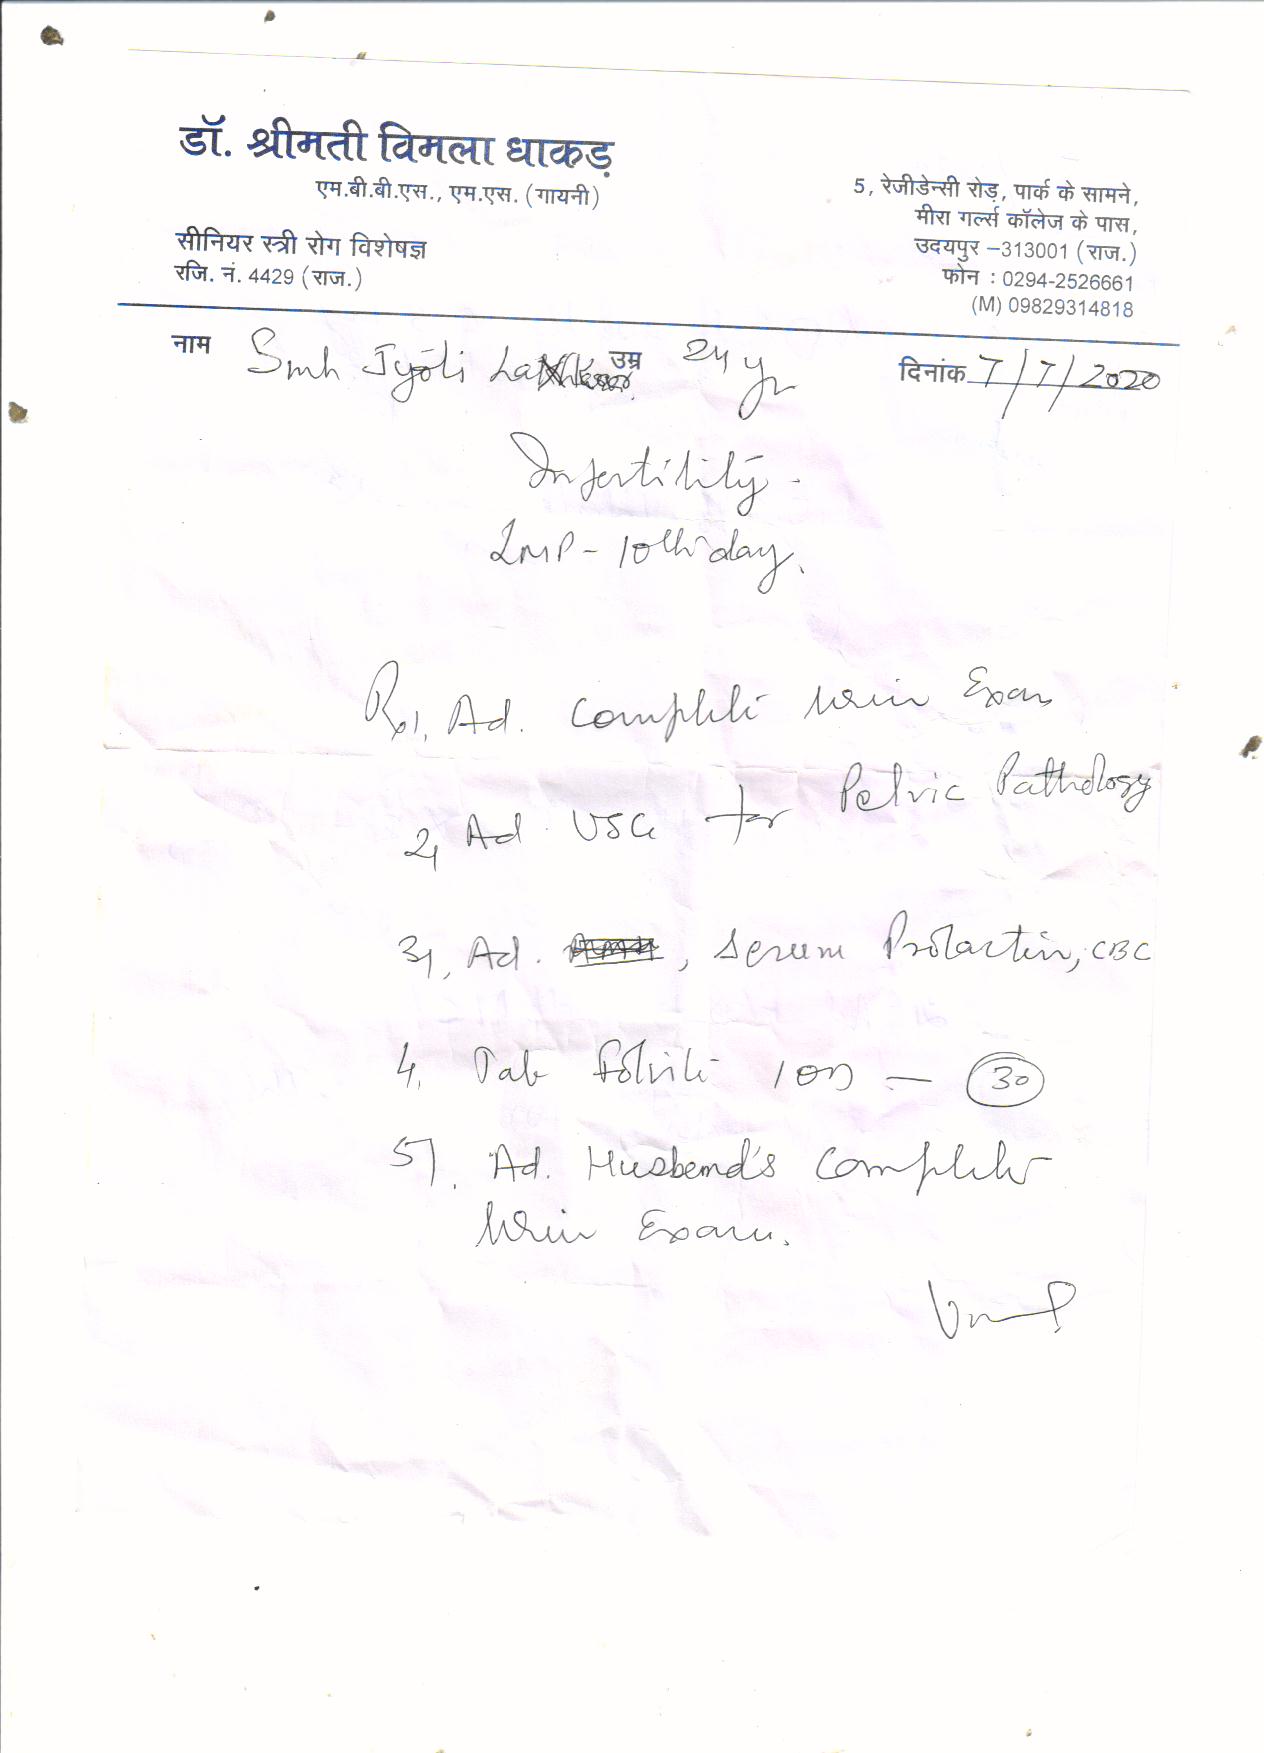 डॉ. श्रीमती विमला धाकड़
एम.बी.बी.एस., एम.एस. (गायनी)
सीनियर स्त्री रोग विशेषज्ञ
रजि. नं. 4429 (राज.)
5, रेजीडेन्सी रोड़, पार्क के सामने,
मीरा गर्ल्स कॉलेज के पास,
उदयपुर –313001 (राज.)
फोन : 0294-2526661
(M) 09829314818
नाम Smt Jyoti उम्र 24 yr दिनांक 7/7/2020
Infertility -
LMP - 10th day.
Rx 1, Ad. Complete Urine Exam
2, Ad USG for Pelvic Pathology
3, Ad. , Serum Prolactin, CBC
4. Tab Folvite 1 OD — 30
5). Ad. Husband's Complete
Urine Exam.